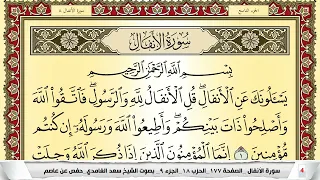 الجزء التاسع
سورة الأنفال
سُورَةُ الأَنفَالِ
بِسْمِ اللَّهِ الرَّحْمَٰنِ الرَّحِيمِ
يَسْـَٔلُونَكَ عَنِ الْأَنفَالِ قُلِ الْأَنفَالُ لِلَّهِ وَالرَّسُولِ فَاتَّقُوا اللَّهَ
وَأَصْلِحُوا ذَاتَ بَيْنِكُمْ وَأَطِيعُوا اللَّهَ وَرَسُولَهُ إِن كُنتُم
مُّؤْمِنِينَ ١ إِنَّمَا الْمُؤْمِنُونَ الَّذِينَ إِذَا ذُكِرَ اللَّهُ وَجِلَتْ
سورة الانفال الصفحة ١٧٧ الحزب ١٨ الجزء ٩ بصوت الشيخ سعد الغامدي حفص عن عاصم
4